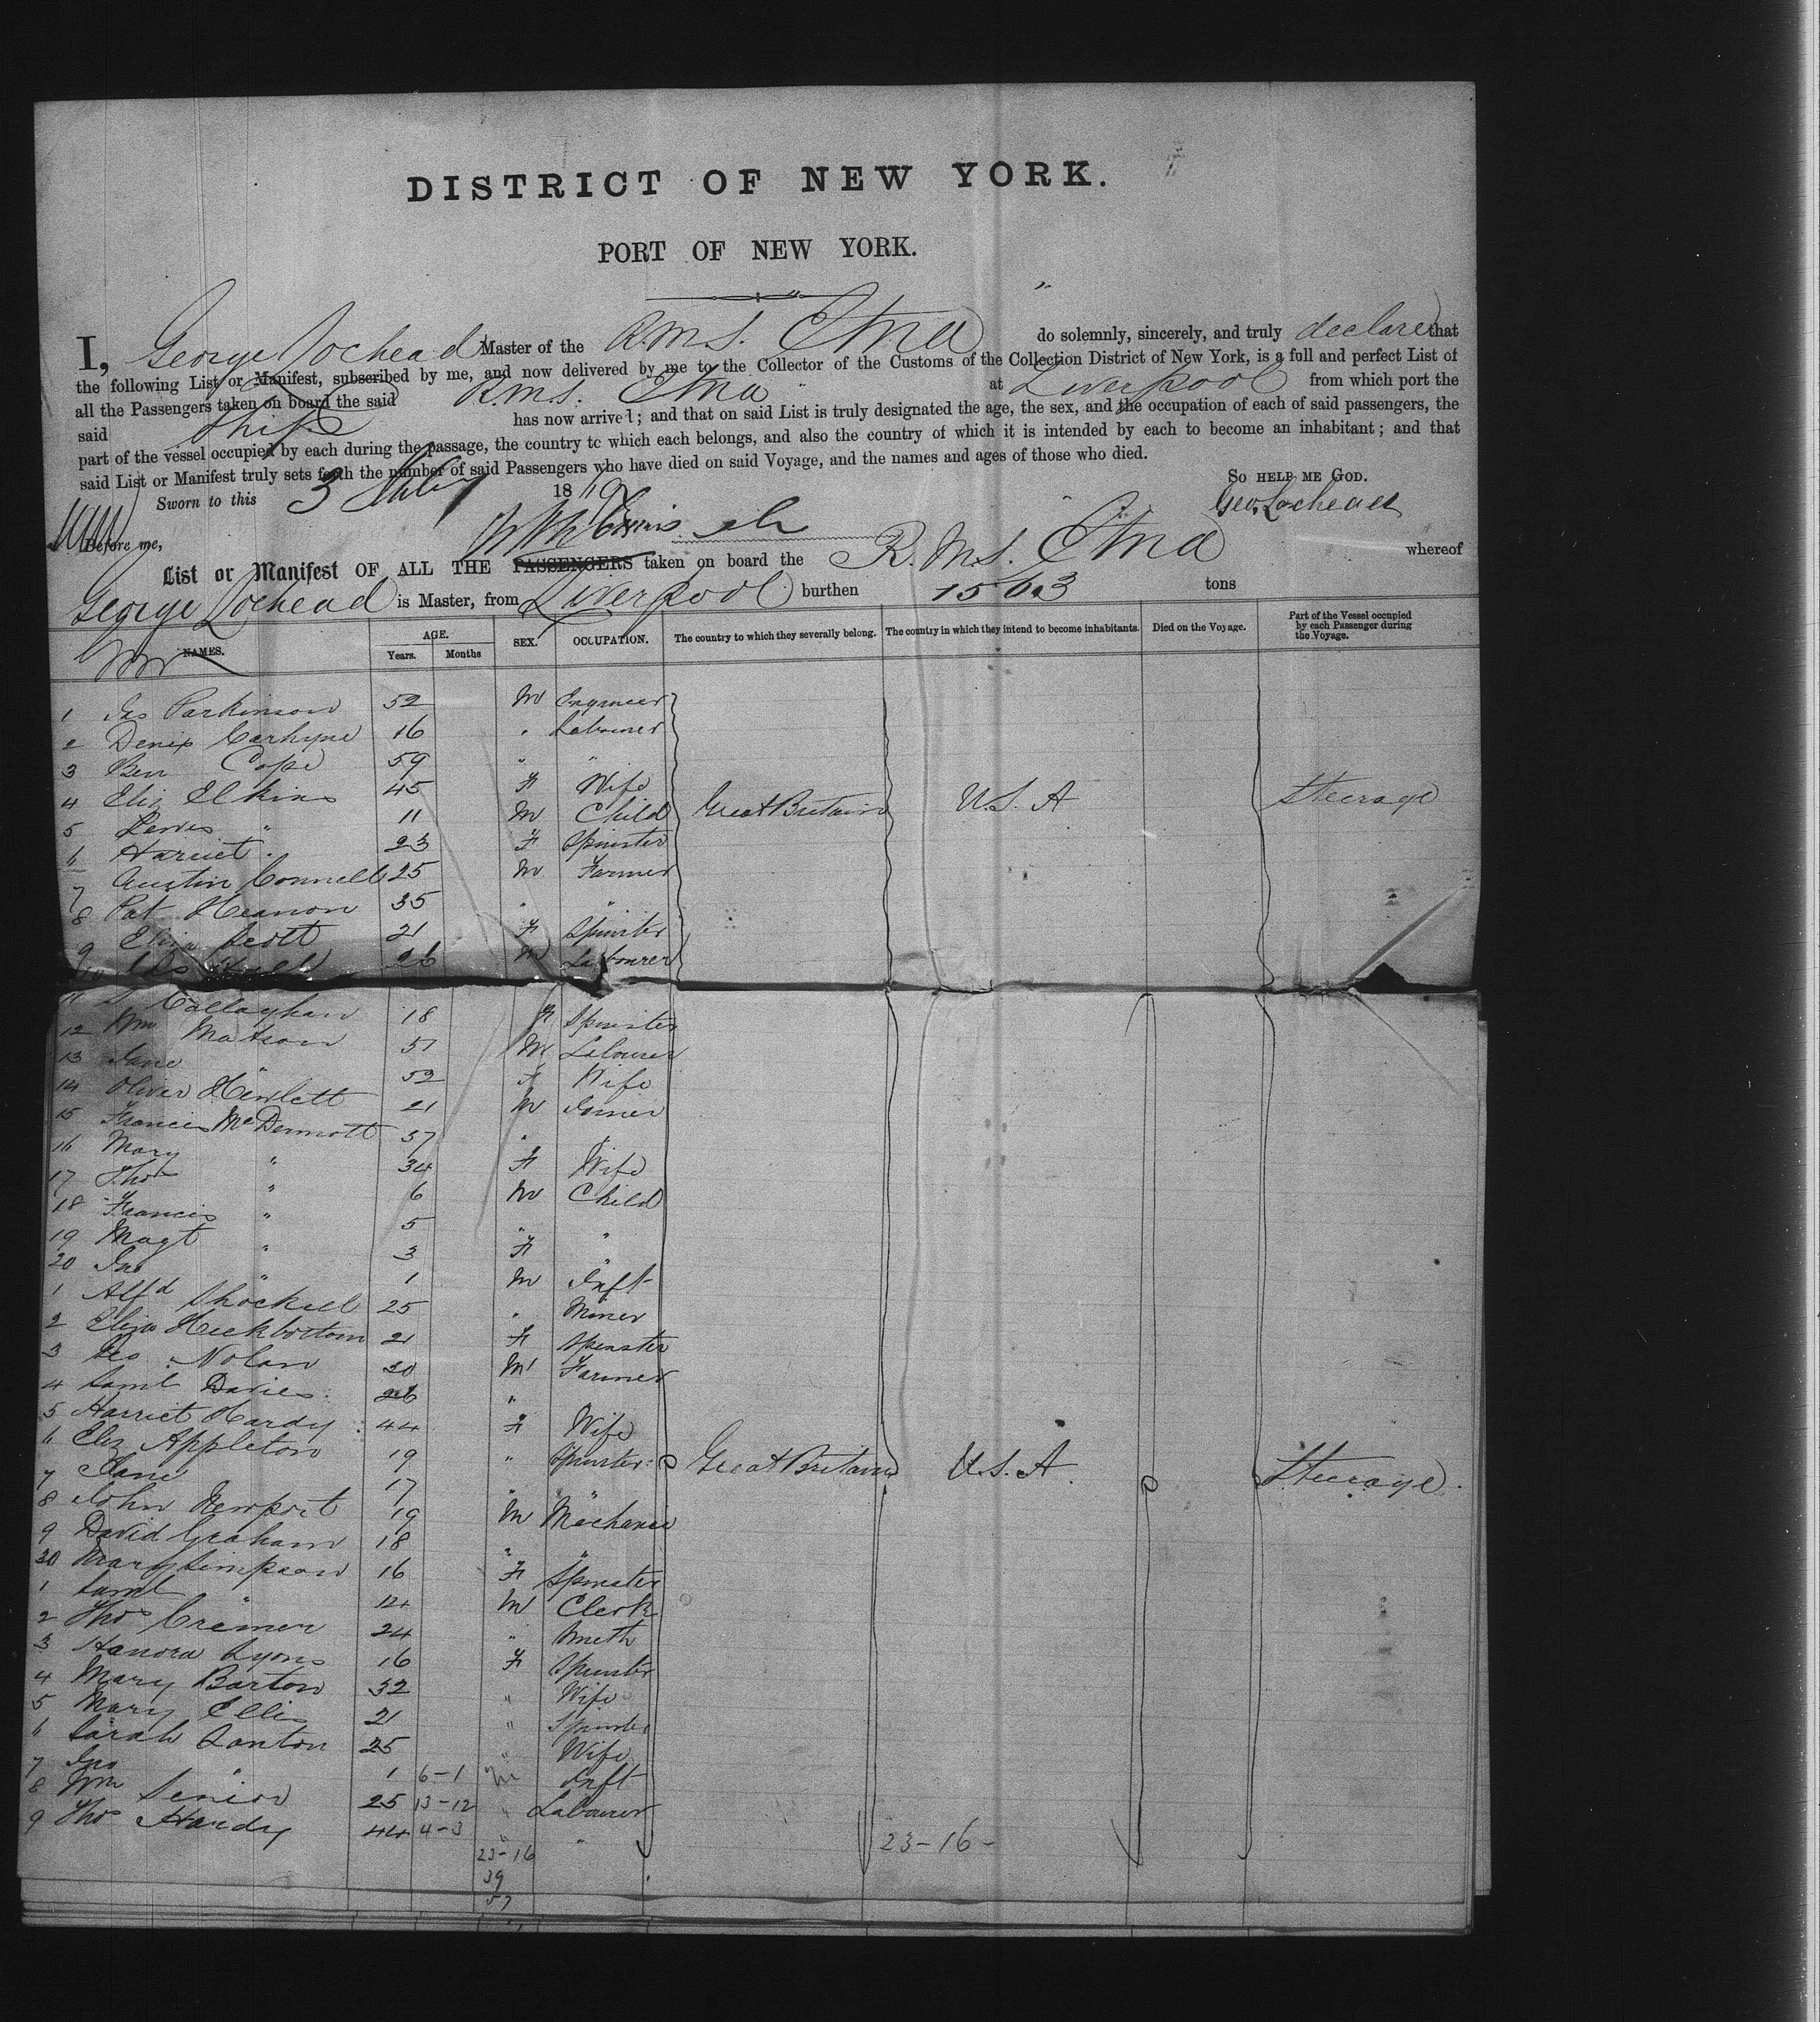 DISTRICT OF NEW YORK.
PORT OF NEW YORK.
I, George Lochead Master of the R.M.S. Etna do solemnly, sincerely, and truly declare that
the following List or Manifest, subscribed by me, and now delivered by me to the Collector of the Customs of the Collection District of New York, is a full and perfect List of
all the Passengers taken on board the said R.M.S. Etna at Liverpool from which port the
said Ship has now arrived; and that on said List is truly designated the age, the sex, and the occupation of each of said passengers, the
part of the vessel occupied by each during the passage, the country to which each belongs, and also the country of which it is intended by each to become an inhabitant; and that
said List or Manifest truly sets forth the number of said Passengers who have died on said Voyage, and the names and ages of those who died.
So HELP ME GOD.
Sworn to this 3 18 Geo. Lochead
Before me,
List or Manifest OF ALL THE PASSENGERS taken on board the R.M.S. Etna whereof
George Lochead is Master, from Liverpool burthen 1563 tons
NAMES. AGE. Years. Months SEX. OCCUPATION. The country to which they severally belong. The country in which they intend to become inhabitants. Died on the Voyage. Part of the Vessel occupied by each Passenger during the Voyage.
1 Jas Parkinson 52 M Engineer
2 Denis 16 " Labourer
3 Ben Cope 59 " "
4 Eliz Elkins 45 F Wife
5 Lewis " 11 M Child Great Britain U.S.A Steerage
6 Harriet " 23 F Spinster
7 Austin Connell 25 M Farmer
8 Pat Heanon 35 " "
9 Eliza Scott 21 F Spinster
10 26 M Labourer
11 Callaghan 18 F Spinster
12 Wm Matson 51 M Labourer
13 Jane " 52 F Wife
14 Oliver Hewlett 21 M Joiner
15 Francis McDermott 37 " "
16 Mary " 34 F Wife
17 Thos " 6 M Child
18 Francis " 5 " "
19 Magt " 3 F "
20 Jno " 1 M Inft
1 Alfd Shockell 25 " Miner
2 Eliza Hickbottom 21 F Spinster
3 Geo Nolan 30 M Farmer
4 Saml Davies 26 "
5 Harriet Hardy 44 F Wife
6 Eliz Appleton 19 " Spinster Great Britain U.S.A. Steerage.
7 Jane " 17 " "
8 John Newport 19 M Mechanic
9 David Graham 18 " "
30 Mary Simpson 16 F Spinster
1 Saml " 14 M Clerk
2 Thos Cremer 24 " Smith
3 Hanora Lyons 16 F Spinster
4 Mary Barton 32 " Wife
5 Mary Ellis 21 " Spinster
6 Sarah Lanton 25 " Wife
7 Jno " 1 6-1 M Inft
8 Wm Senior 25 13-12 " Labourer
9 Thos Hardy 44 4-3 " "
23-16 23-16-
39
57